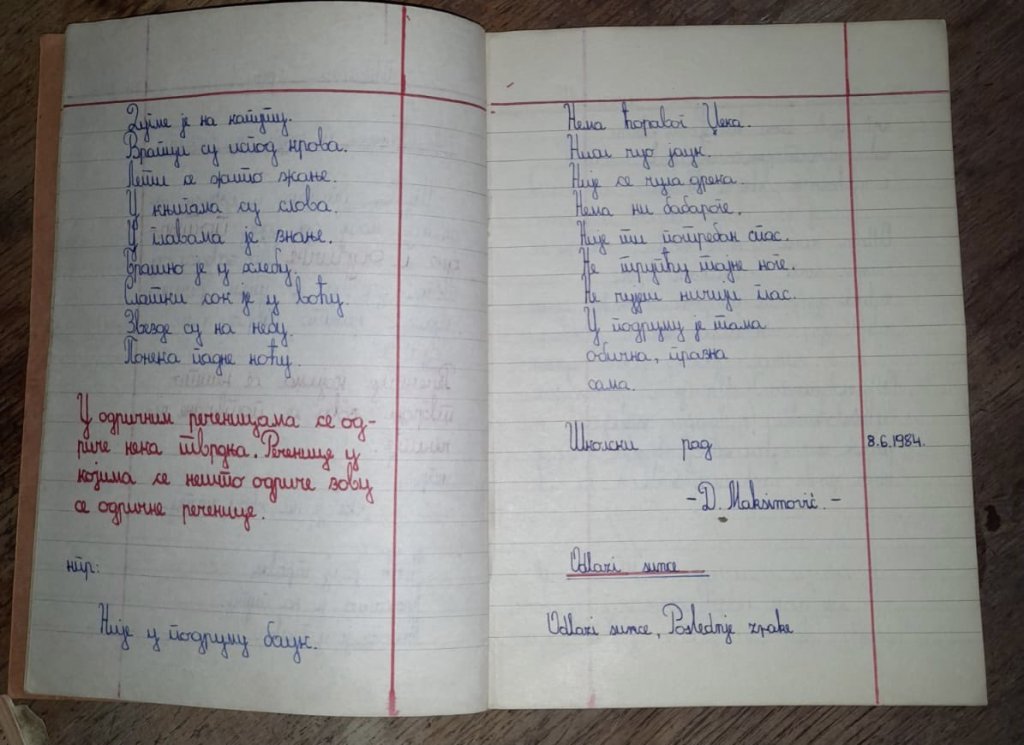 Дугме је на капуту.
Врапци су испод крова.
Лети се жито жање.
У књигама су слова.
У главама је знање.
Брашно је у хлебу.
Слатки сок је у воћу.
Звезде су на небу.
Понека падне ноћу.
У одричним реченицама се од-
риче нека тврдња. Реченице у
којима се нешто одриче зову
се одричне реченице.
нпр:
Није у подруму баук.
Нема ћоравог Џека.
Ниси чуо јаук.
Није се чула дрека.
Нема ни бабароге.
Није ти потребан спас.
Не трупћу тајне ноге.
Не чујеш ничији глас.
У подруму је тама
обична, празна
сама.
Школски рад 8.6.1984.
-D. Maksimović.-
Odlazi sunce
Odlazi sunce, Poslednje zrake